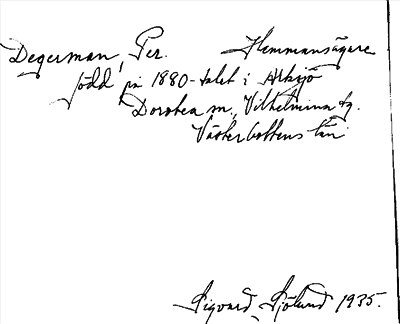 Degerman, Per. Hemmansägare
född på 1880-talet i Alksjö
Dorotea m., Vilhelmina tg.
Västerbottens län
Sigvard Sjölund 1935.